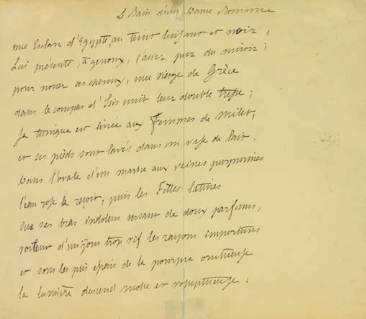 Le Bain d'une Dame Romaine
une Esclave d'Egypte, au teint luisant et noir,
Lui présente, à genoux, l'acier pur du miroir ;
pour nouer ses cheveux, une vierge de Grèce
dans le compas d'Isis unit leur double tresse ;
sa tunique est livrée aux Femmes de Milet,
et ses pieds sont lavés dans un vase de lait.
Dans l'ovale d'un marbre aux veines purpurines
l'eau rose la reçoit, puis les Filles latines
sur ses bras indolens versant de doux parfums,
voilent d'un jour trop vif les rayons importuns
et sous les plis épais de la pourpre onctueuse
la lumière descend molle et voluptueuse :